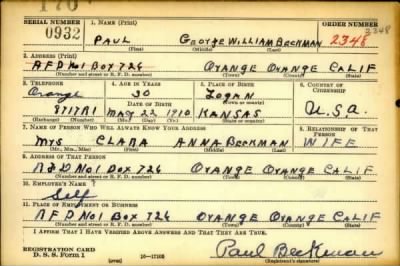 SERIAL NUMBER 1. NAME (Print) ORDER NUMBER
0932 PAUL GEORGE WILLIAM BECKMAN 2348 2348
(First) (Middle) (Last)
2. ADDRESS (Print)
RFD No1 Box 726 ORANGE ORANGE CALIF
(Number and street or R. F. D. number) (Town) (County) (State)
3. TELEPHONE 4. AGE IN YEARS 5. PLACE OF BIRTH 6. COUNTRY OF CITIZENSHIP
Orange 30 LOGAN
DATE OF BIRTH (Town or county)
MAY 22 1910 KANSAS U.S.A.
(Exchange) (Number) (Mo.) (Day) (Yr.) (State or country)
7. NAME OF PERSON WHO WILL ALWAYS KNOW YOUR ADDRESS 8. RELATIONSHIP OF THAT PERSON
MRS CLARA ANNA BECKMAN WIFE
(Mr., Mrs., Miss) (First) (Middle) (Last)
9. ADDRESS OF THAT PERSON
RFD No1 Box 726 ORANGE ORANGE CALIF
(Number and street or R. F. D. number) (Town) (County) (State)
10. EMPLOYER'S NAME
Self
11. PLACE OF EMPLOYMENT OR BUSINESS
RFD No1 Box 726 ORANGE ORANGE CALIF
(Number and street or R. F. D. number) (Town) (County) (State)
I AFFIRM THAT I HAVE VERIFIED ABOVE ANSWERS AND THAT THEY ARE TRUE.
REGISTRATION CARD
D. S. S. Form 1 (over) 16—17105 Paul Beckman
(Registrant's signature)